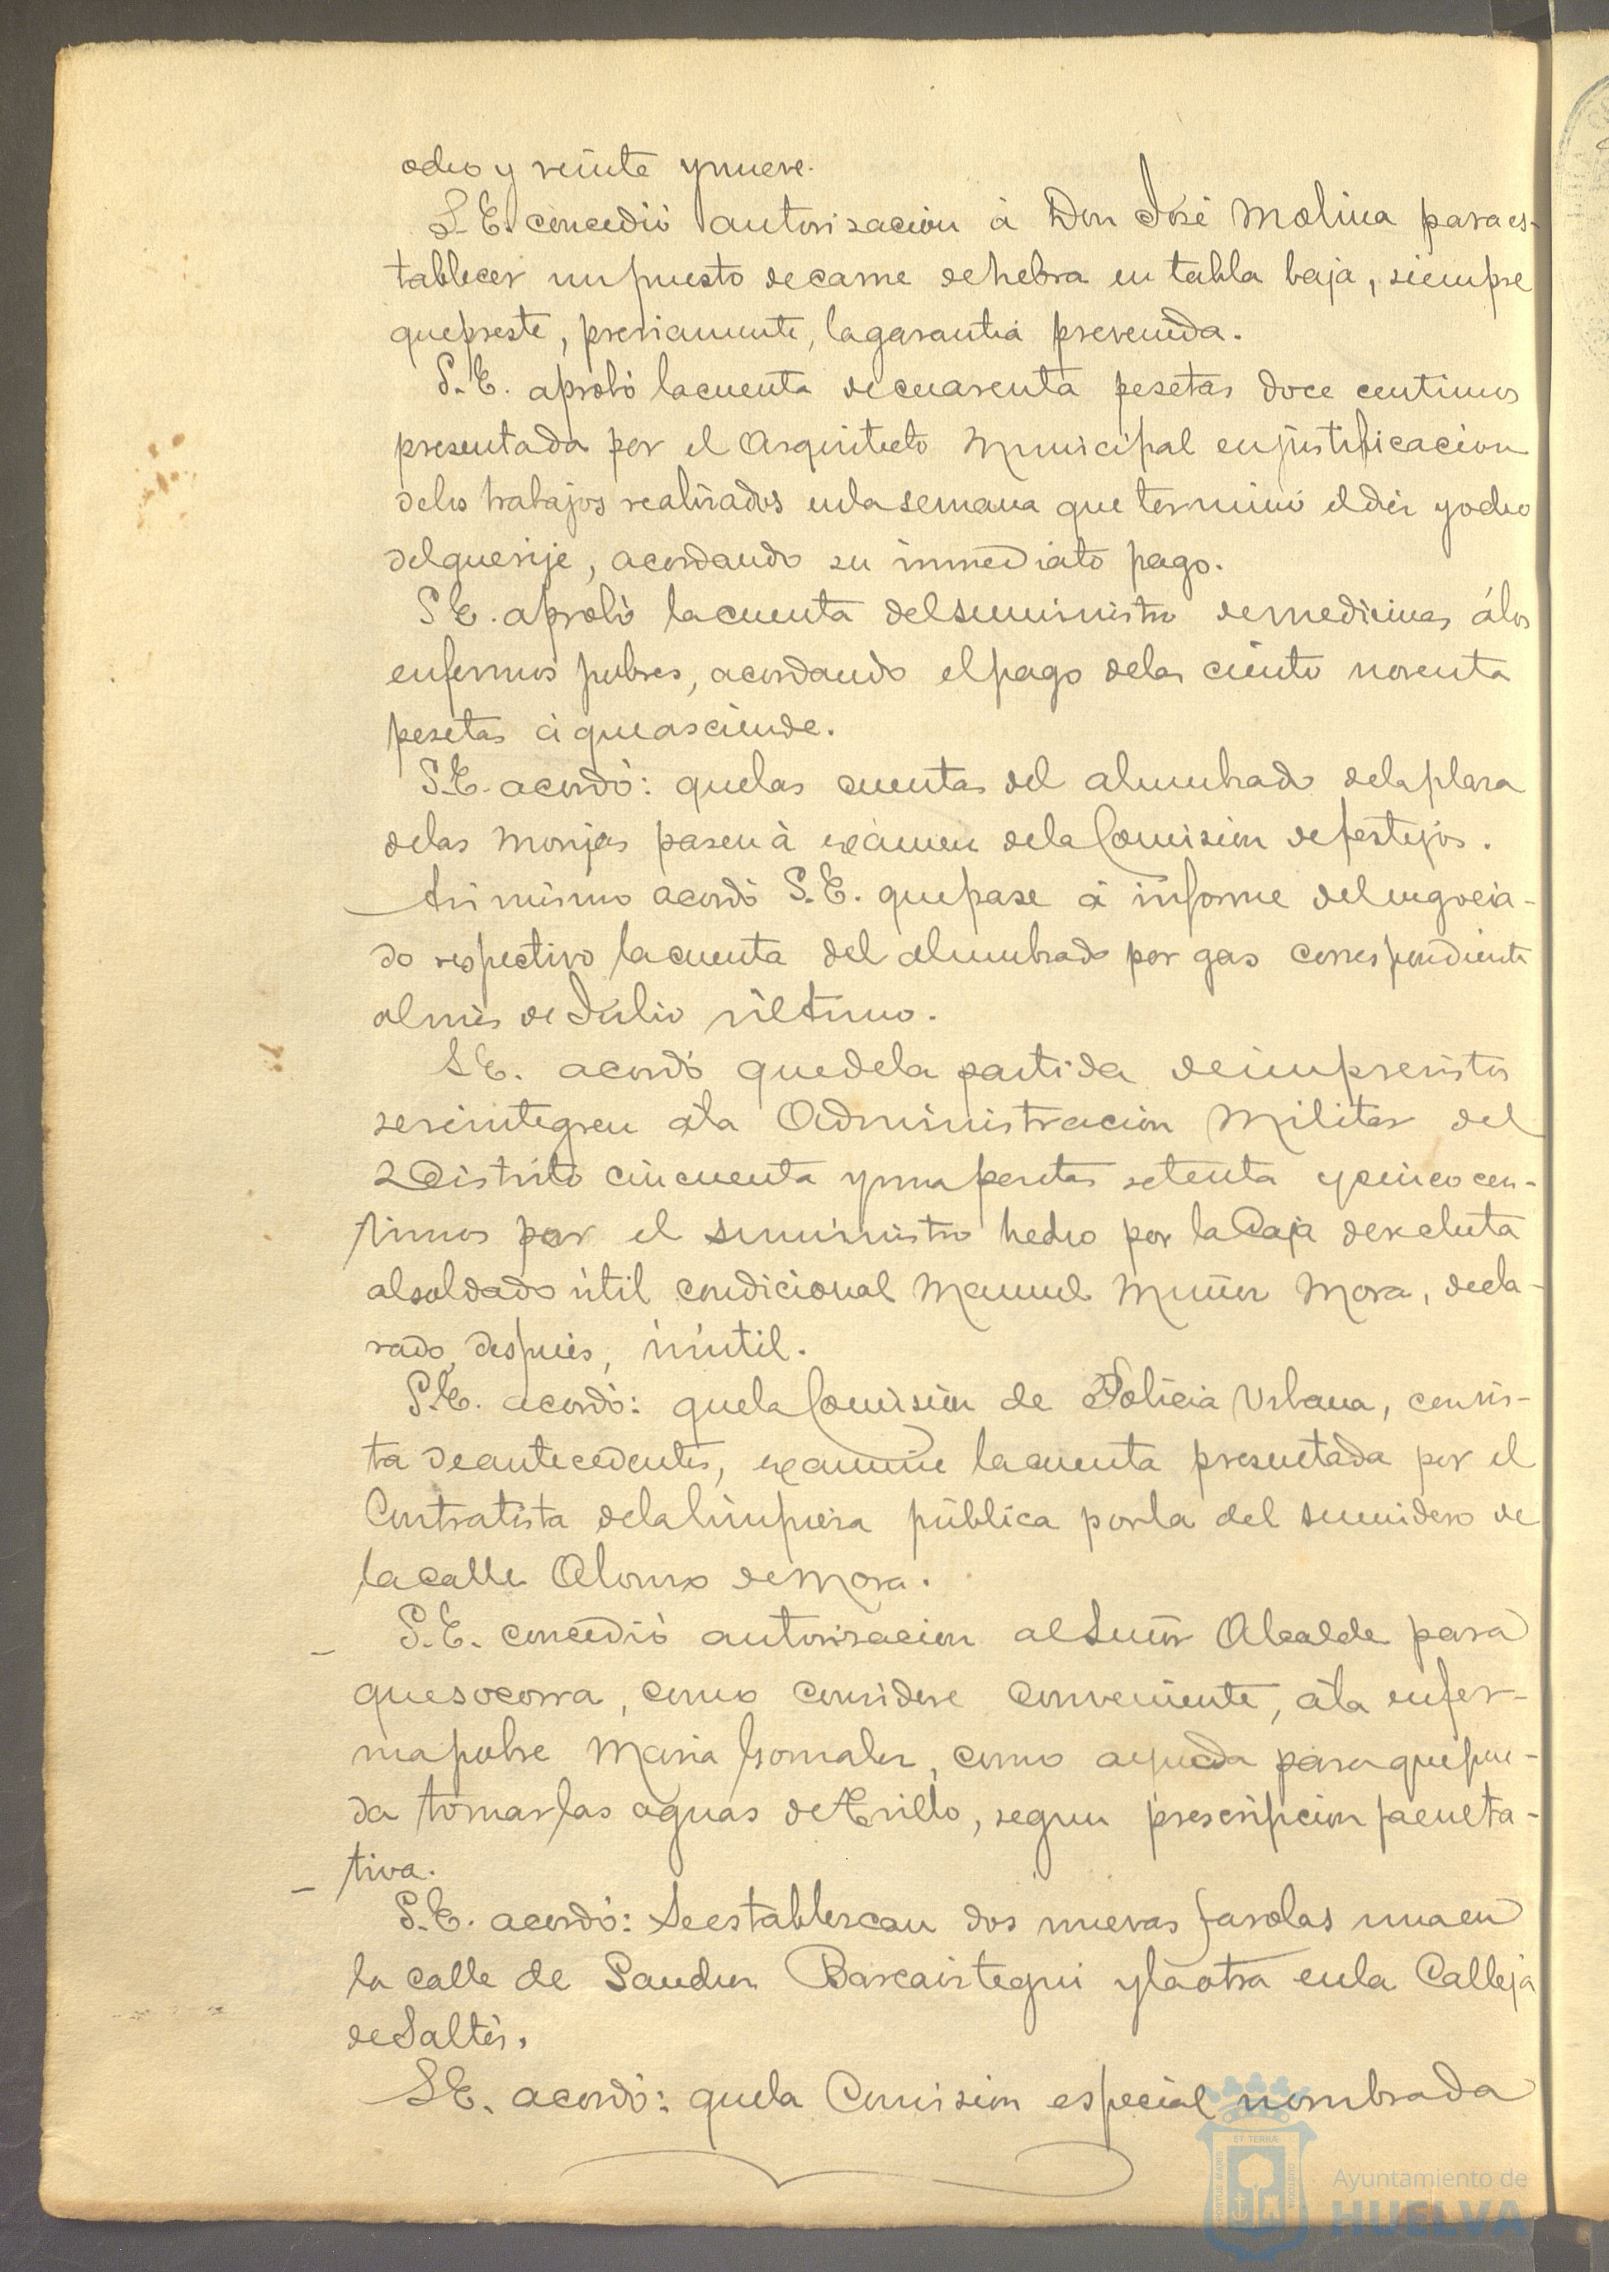 ocho y veinte y nueve.
S. E. concedió autorizacion á Don José Molina para es-
tablecer un puesto de carne de hebra en tabla baja, siempre
que preste, previamente, la garantia prevenida.
S. E. aprobó la cuenta de cuarenta pesetas doce centimos
presentada por el Arquitecto Municipal en justificacion
de los trabajos realizados en la semana que terminó el diez y ocho
del que rije, acordando su inmediato pago.
S E. aprobó la cuenta del suministro de medicinas á los
enfermos pobres, acordando el pago de las ciento noventa
pesetas á que asciende.
S. E. acordó: que las cuentas del alumbrado de la plaza
de las Monjas pasen á exámen de la Comision de festejos.
Asi mismo acordó S. E. que pase á informe del negocia-
do respectivo la cuenta del alumbrado por gas correspondiente
al mes de Julio último.
S E. acordó que de la partida de imprevistos
se reintegren á la Administracion Militar del
Distrito cincuenta y una pesetas setenta y cinco cen-
timos por el suministro hecho por la Caja de recluta
al soldado útil condicional Manuel Muñoz Mora, decla-
rado, despues, inútil.
S. E. acordó: que la Comision de Policia Urbana, con vis-
ta de antecedentes, examine la cuenta presentada por el
Contratista de la limpieza pública por la del sumidero de
la calle Alonso de Mora.
S. E. concedió autorizacion al Señor Alcalde para
que socorra, como considere conveniente, á la enfer-
ma pobre Maria Gonzalez, como ayuda para que pue-
da tomar las aguas de Trillo, segun prescripcion faculta-
tiva.
S. E. acordó: Se establezcan dos nuevas farolas una en
la calle de Sanchez Barcaiztegui y la otra en la Calleja
de Saltés.
S E. acordó: que la Comision especial nombrada
ET TERRÆ
PORTUS MARIS
CUSTODIA
Ayuntamiento de
HUELVA